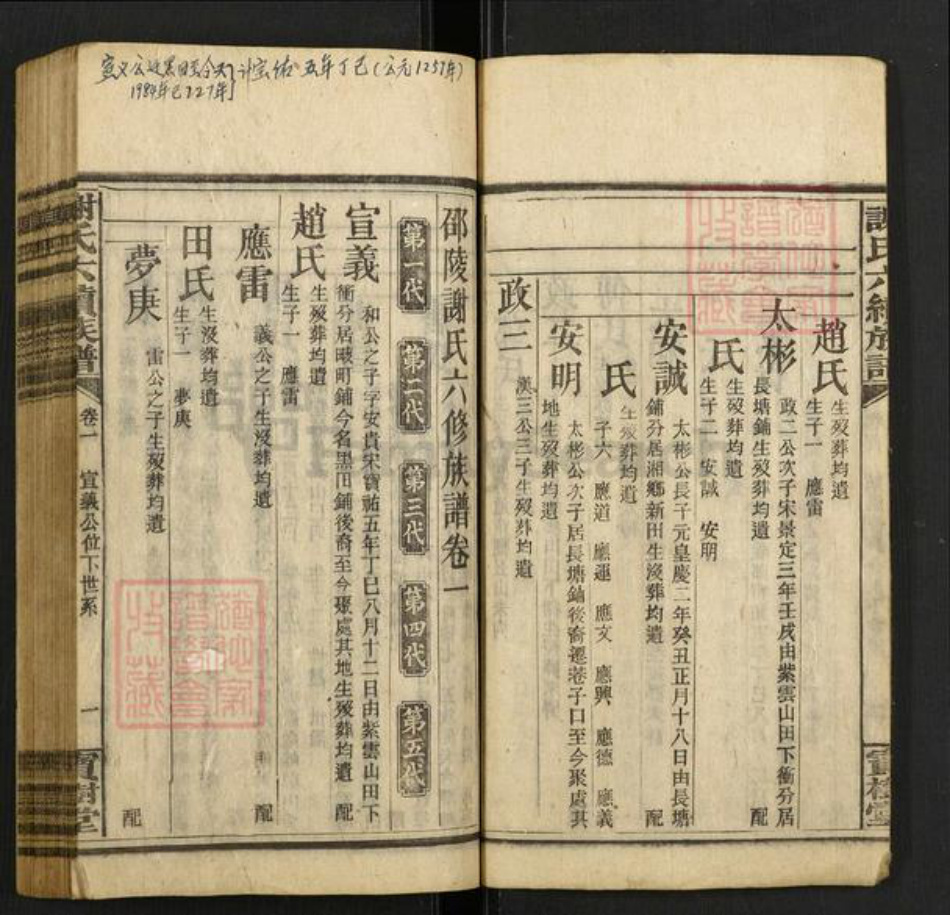 謝氏六續族譜
趙氏
生歿葬均遺
生子一 應雷
太彬
政二公次子宋景定三年壬戌由紫雲山田下衝分居
長塘鋪生歿葬均遺
配
氏
生歿葬均遺
生子二 安誠 安明
安誠
太彬公長子元皇慶二年癸丑正月十八日由長塘
鋪分居湘鄉新田生沒葬均遺
配
氏
生歿葬均遺
子六 應道 應運 應文 應興 應德 應義
安明
太彬公次子居長塘鋪後裔遷巷子口至今聚處其
地生歿葬均遺
政三
漢三公三子生歿葬均遺
寶樹堂
宣义公迁黑田至今天计宝佑五年丁巳(公元1257年)
1984年已727年
邵陵謝氏六修族譜卷一
第一代 第二代 第三代 第四代 第五代
宣義
和公之子字安貴宋寶祐五年丁巳八月十二日由紫雲山田下
衝分居町鋪今名黑田鋪後裔至今聚處其地生歿葬均遺
配
趙氏
生歿葬均遺
生子一 應雷
應雷
義公之子生沒葬均遺
配
田氏
生沒葬均遺
生子一 夢庚
夢庚
雷公之子生歿葬均遺
配
謝氏六續族譜
卷一 宣義公位下世系
一
寶樹堂